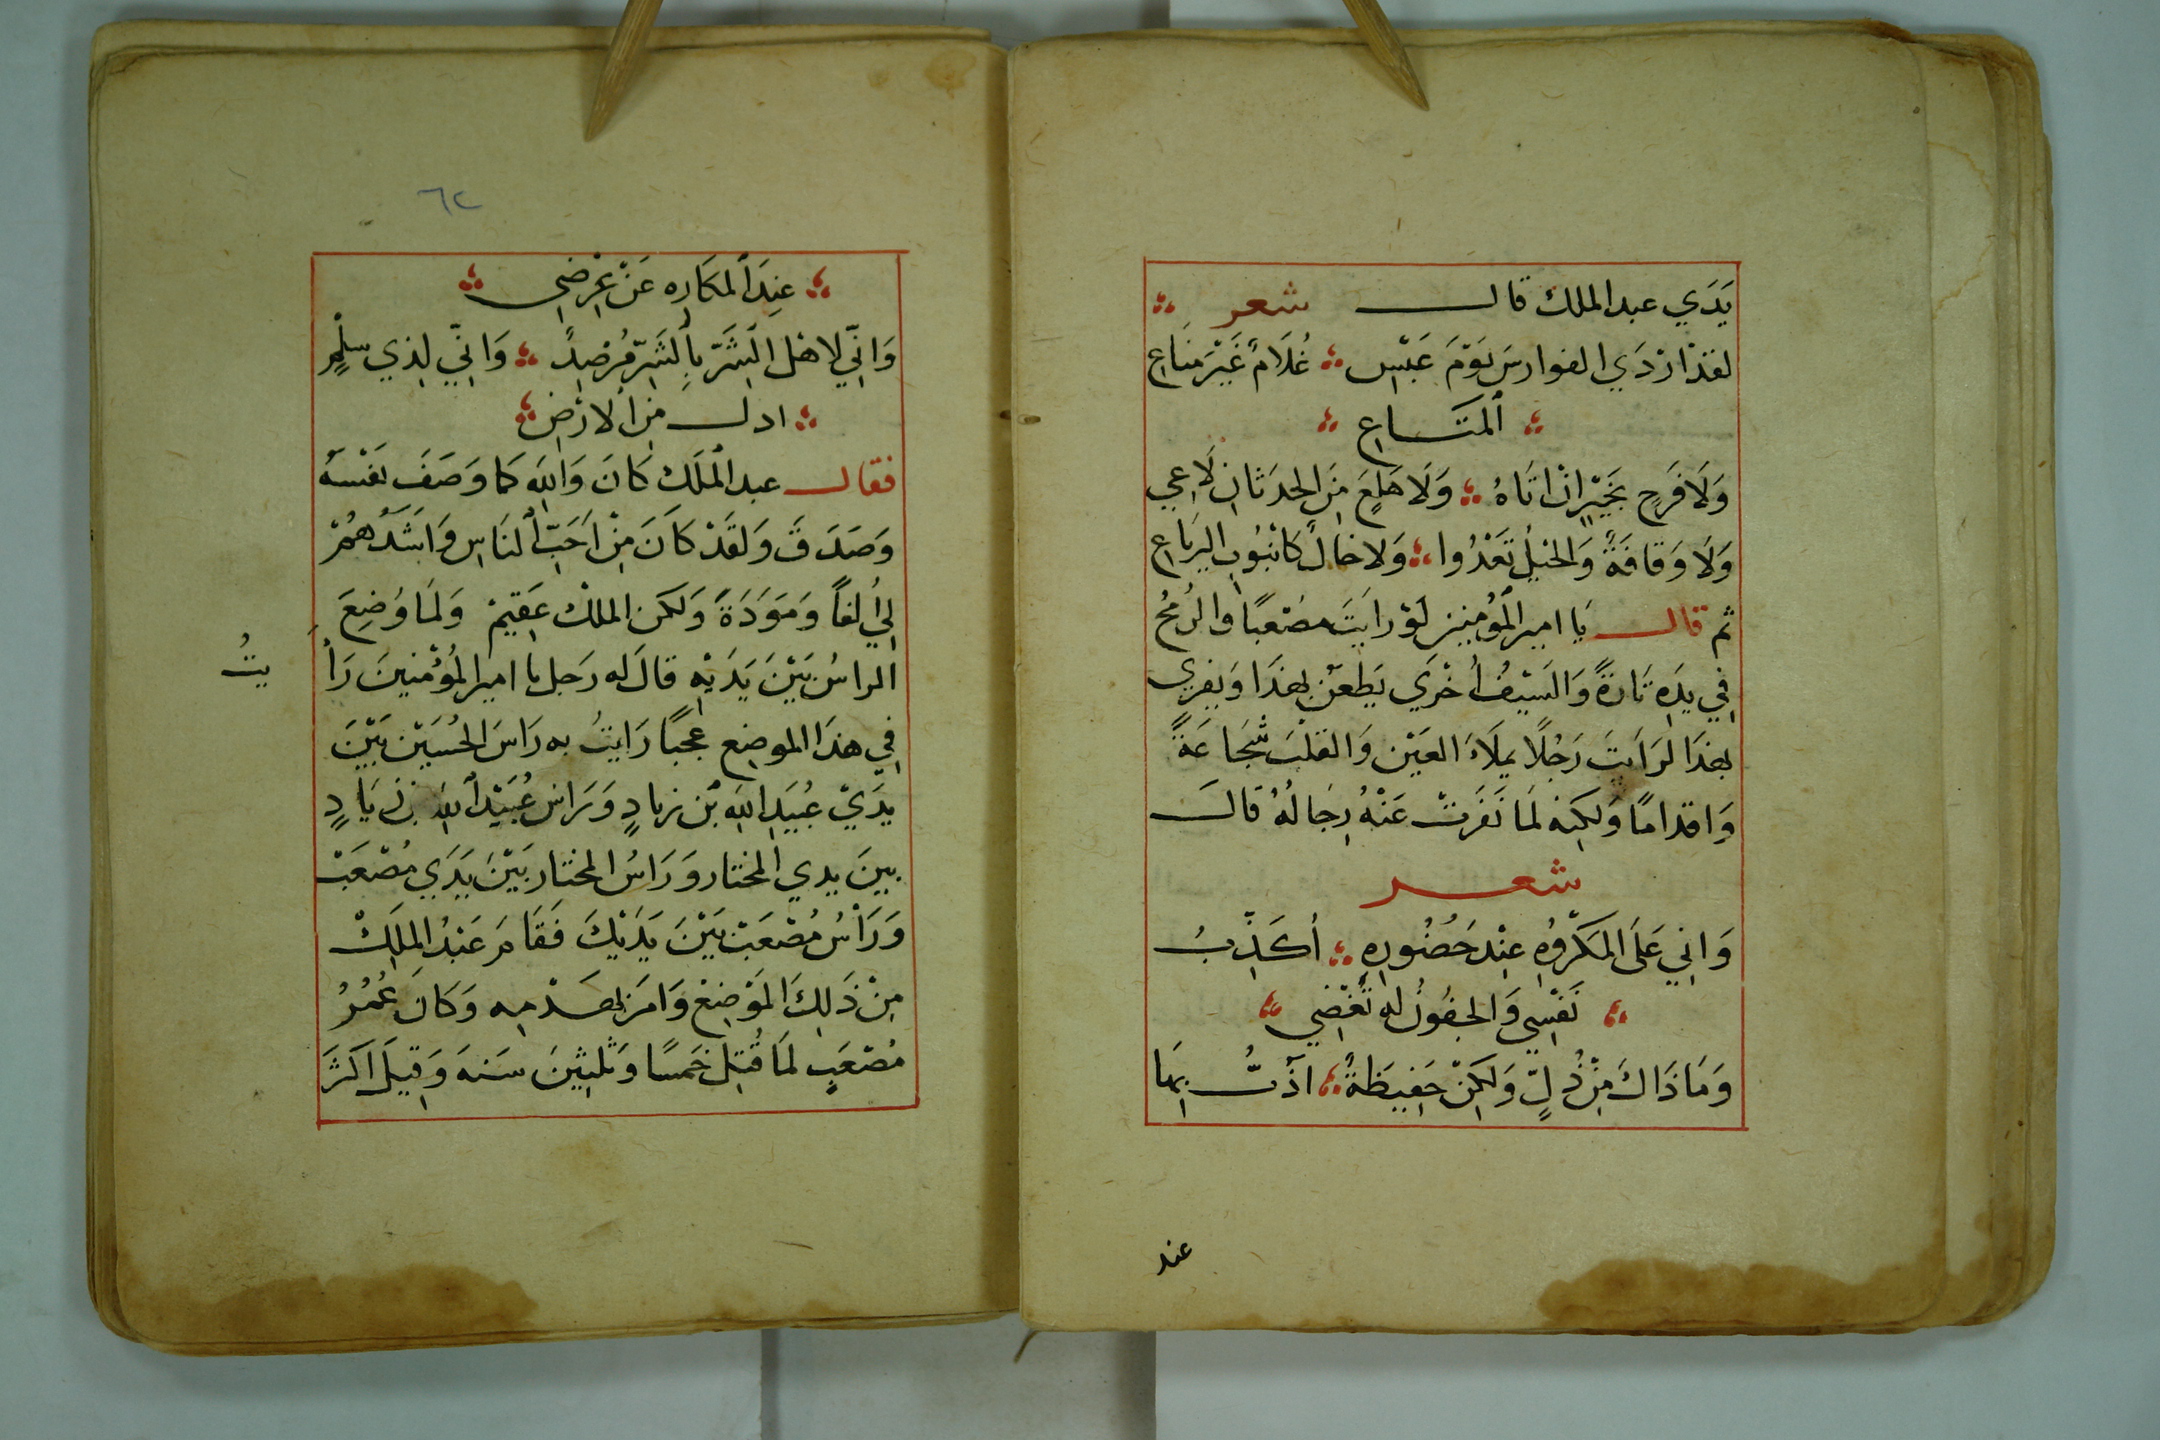 يَدَي عبدالملك قال شعر
لقَدْ ارْدَي الفوارسَ يَوْمَ عَبْسٍ غُلَامٌ غَيْرَ مَنَاعِ
ٱلمَتَاعِ
وَلَا فَرَحٍ بَخَيْرٍ انْ اتَاهُ وَلَا هَلِعَ مِنَ الحدَثانِ لَاعِي
وَلَا وَقافَةٌ وَالخَيْلُ تَعْدُوا وَلا خَالٌ كَانْبُوبِ اليَرَاعِ
ثم قال يَا امير المُومِنِين لَوْ رَايتَ مصْعَبًا والرُمْحُ
فِي يدِهِ تَارةً وَالسَيْفُ أُخْرَي يَطعَنْ بِهَذَا وَيَفرِي
بِهَذَا لَرَايتَ رَجُلًا يملَاءُ العَيْن وَالقَلبَ شَجَاعَةً
وَاقدامًا وَلكِنه لمَا نَفَرَتْ عَنْهُ رِجَالُهُ قَالَ
شعر
وَانِي عَلَى المَكْروُهِ عِنْدَ حَضُورِهِ أكَذِّبُ
نَفْسِي وَالجفُونُ لَه تُغْضِي
وَمَا ذَاكَ مِنْ ذُلٍّ وَلَكِنْ حَفِيظَةٌ اذُبُّ بِهَا
عند
٦٢
عِندَ ٱلمكَارِهِ عَنْ عِرْضِي
وَانِّي لاهْل الشَرّ بِالشَرّ مُرْصِدٌ وَانِّي لِذِي سلْمٍ
ادل مِن الارْضِ
فقال عبد المَلَك كَانَ وَاللهِ كَمَا وَصَفَ نَفْسَهُ
وَصَدَقَ وَلَقَدْ كَانَ مِنْ اَحَبّ النَاسِ وَاشَدُهمُ
لِي اُلفاً وَمَوَدَةً وَلكن الملكْ عَقِيمْ وَلَمَا وُضِعَ
الراسُ بَيْنَ يَدَيْهِ قالَ له رَجل يا امير المُؤْمنينَ رَأ
يتُ
فِي هذَا الموضِع عجَبًا رَايتُ به رَاسَ الحُسَيْن بَيْنَ
يدَيّ عُبَيدِ اللهَ بْن زيادٍ وَرَاسَ عُبَيْد اللهِ بن زيَادٍ
بينَ يدي المختار وَرَاسُ المختار بَيْنَ يَدَي مُصْعَبْ
وَرَأْسُ مُصْعَبْ بَيْنَ يَدَيْكَ فَقَامَ عَبْدُ المَلِكْ
مِنْ ذَلِكَ المَوْضِعْ وَامَرَ بِهَدْمِه وَكَانَ عُمُرُ
مُصْعَبٍ لمَا قُتِلَ خَمسًا وَثلثِينَ سَنهَ وَقِيلَ اكثَرَ